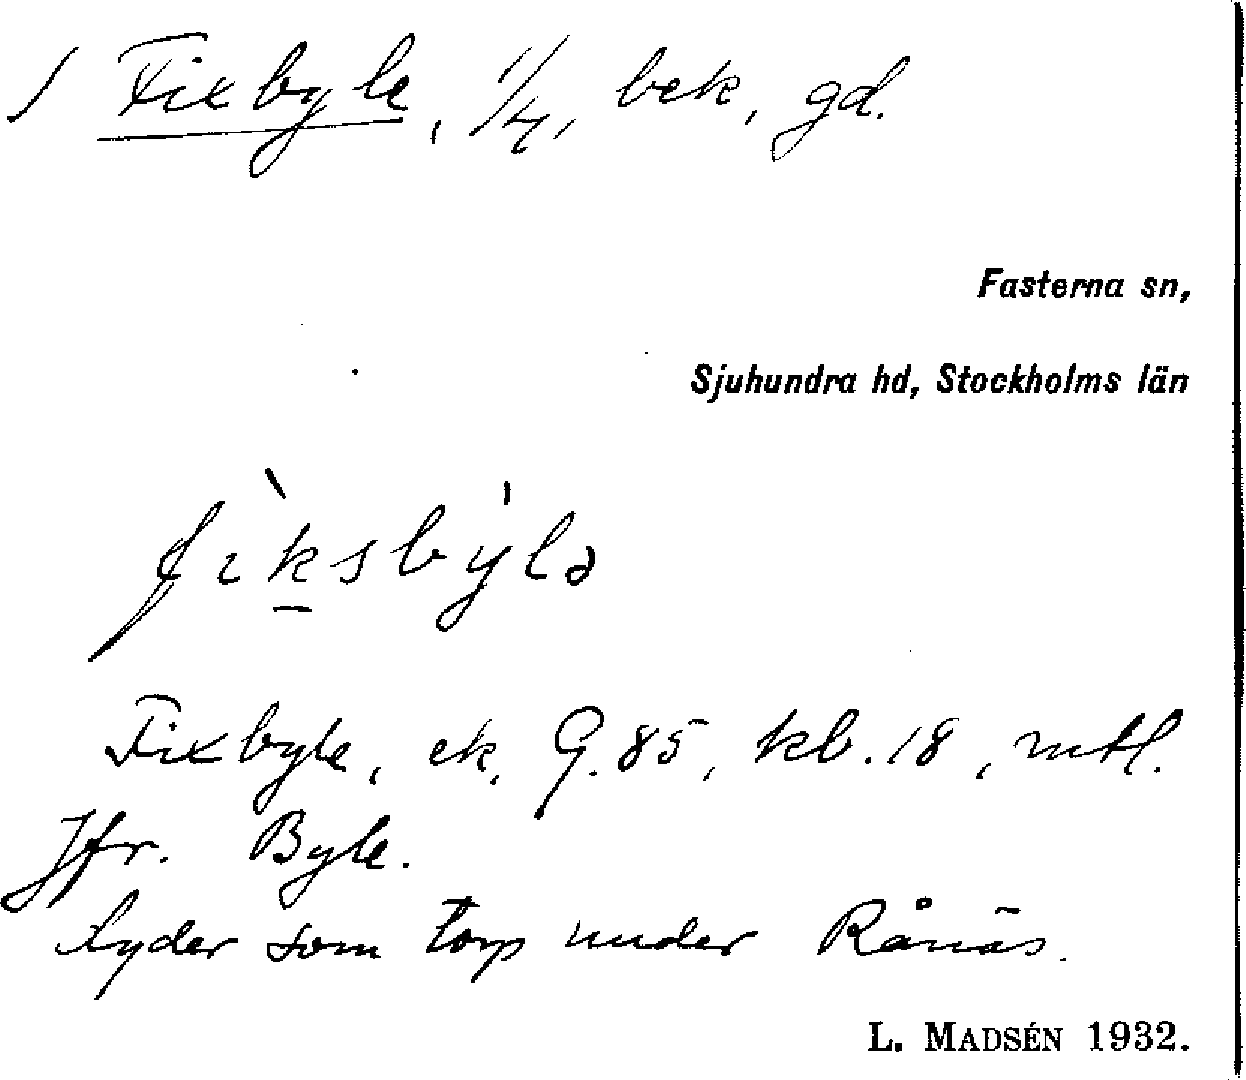 / Fixbyle, 1/4, bek, gd.
Fasterna sn,
Sjuhundra hd, Stockholms län
fìksby̍lə
Fixbyle, ek. G. 85, kb. 18, mtl.
Jfr. Byle.
Lyder som torp under Rånäs.
L. MADSÉN 1932.